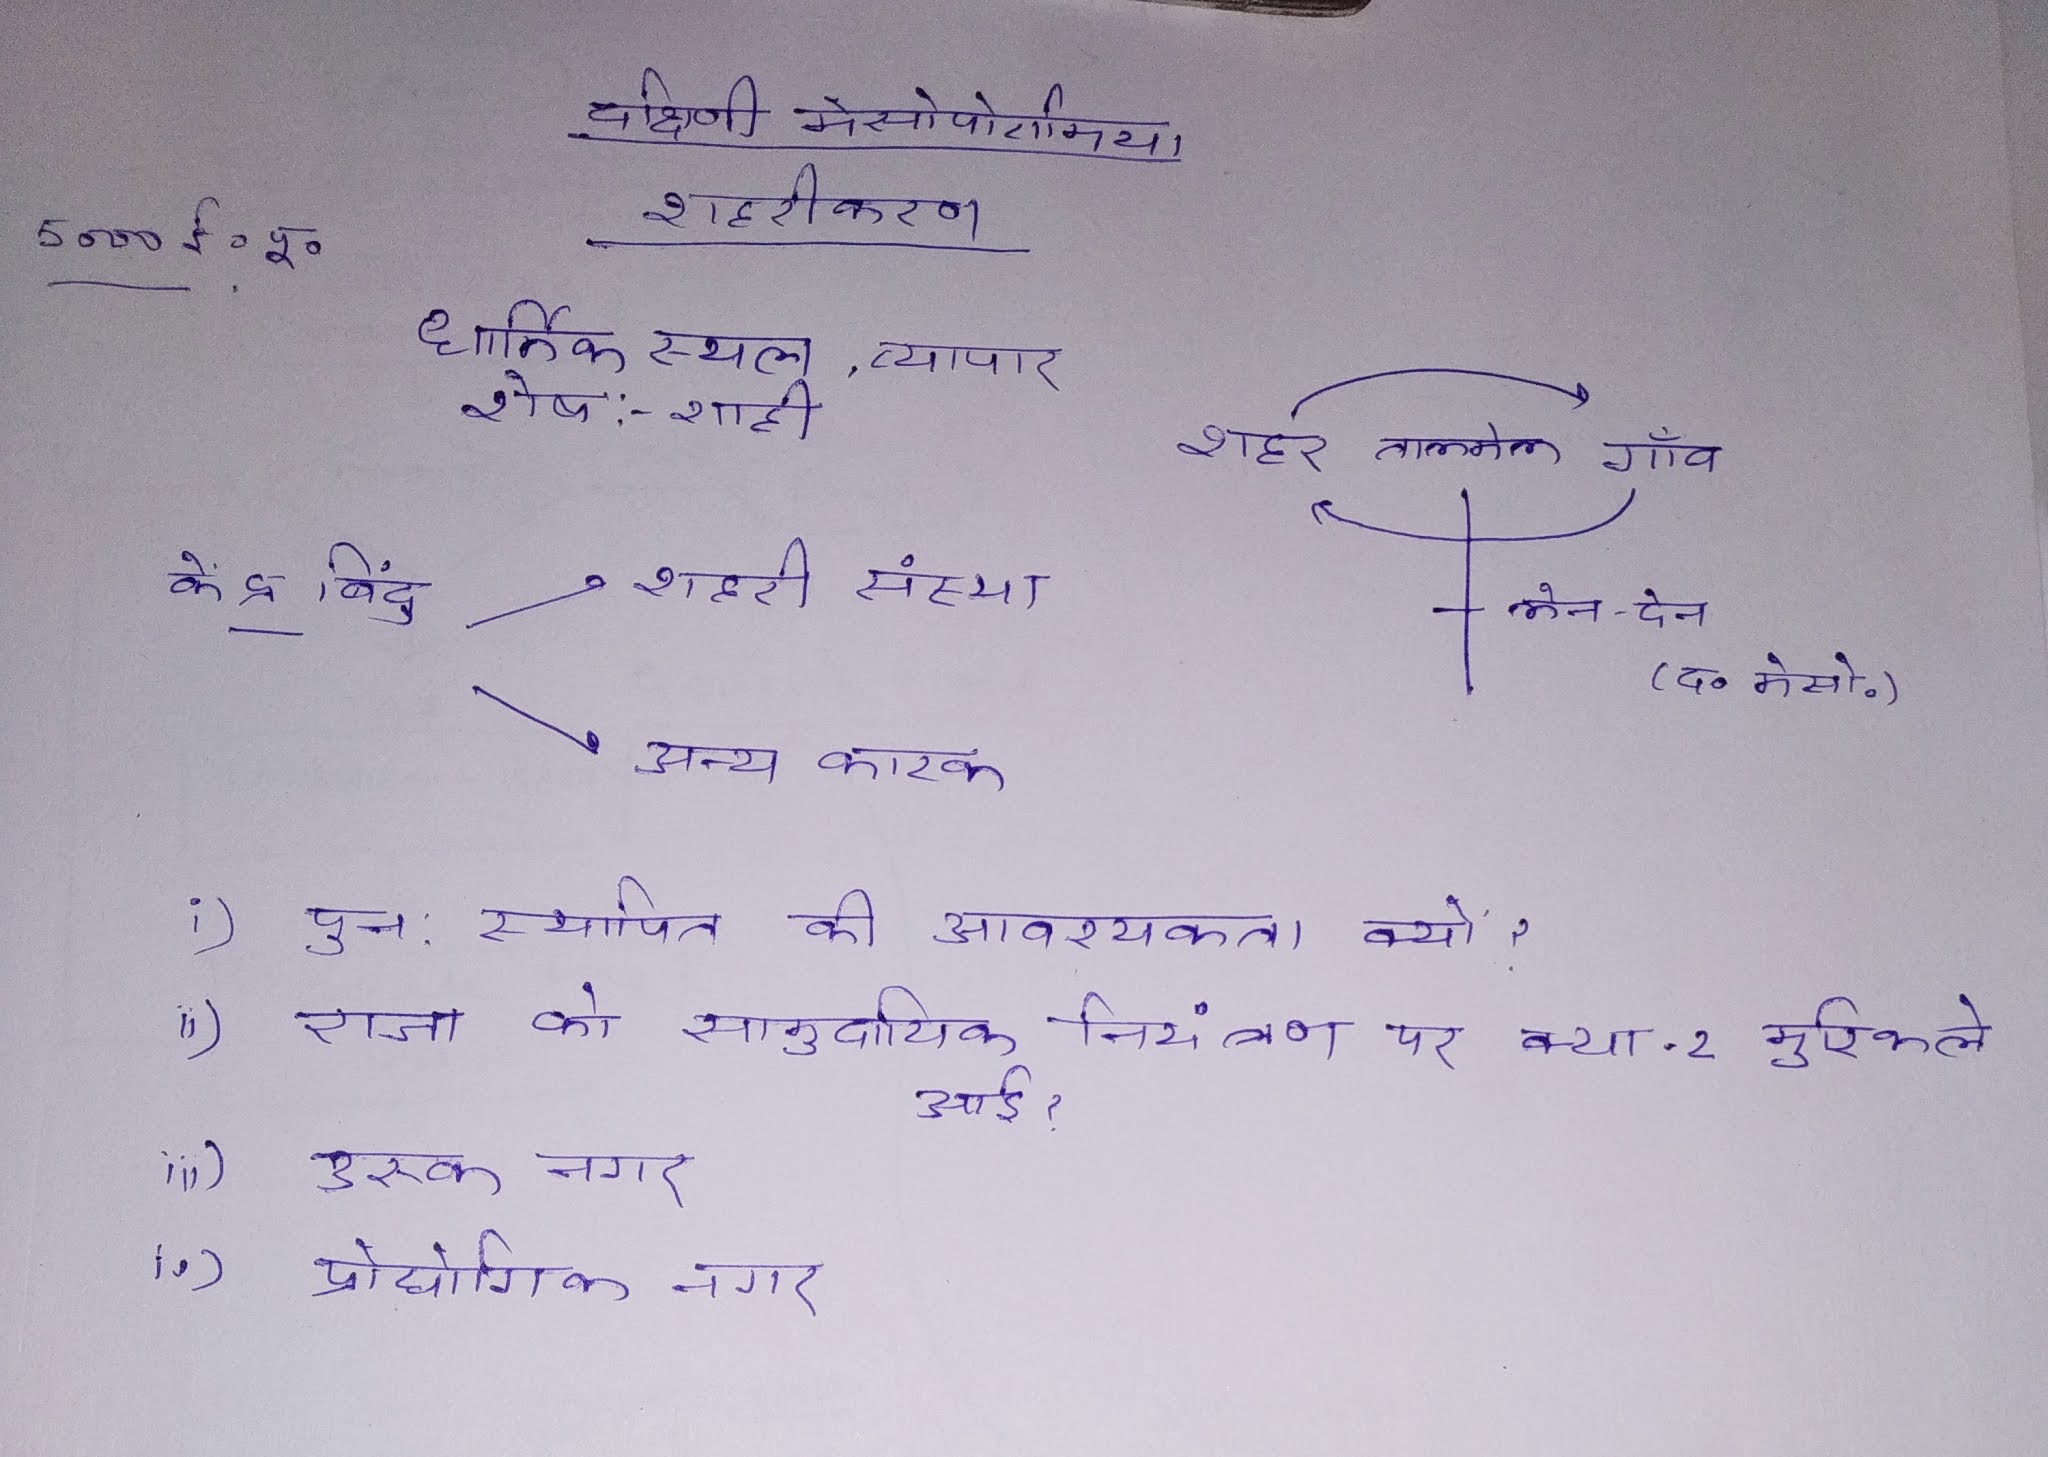 दक्षिणी मेसोपोटामिया
शहरीकरण
5000 ई० पू०
धार्मिक स्थल, व्यापार
शेष :- शाही
शहर तालमेल गाँव
लेन-देन
(द० मेसो०)
केंद्र बिंदु
शहरी संस्था
अन्य कारक
i) पुन: स्थापित की आवश्यकता क्यों?
ii) राजा को सामुदायिक नियंत्रण पर क्या-२ मुश्किले
आई?
iii) उरूक नगर
iv) प्रोद्योगिक नगर